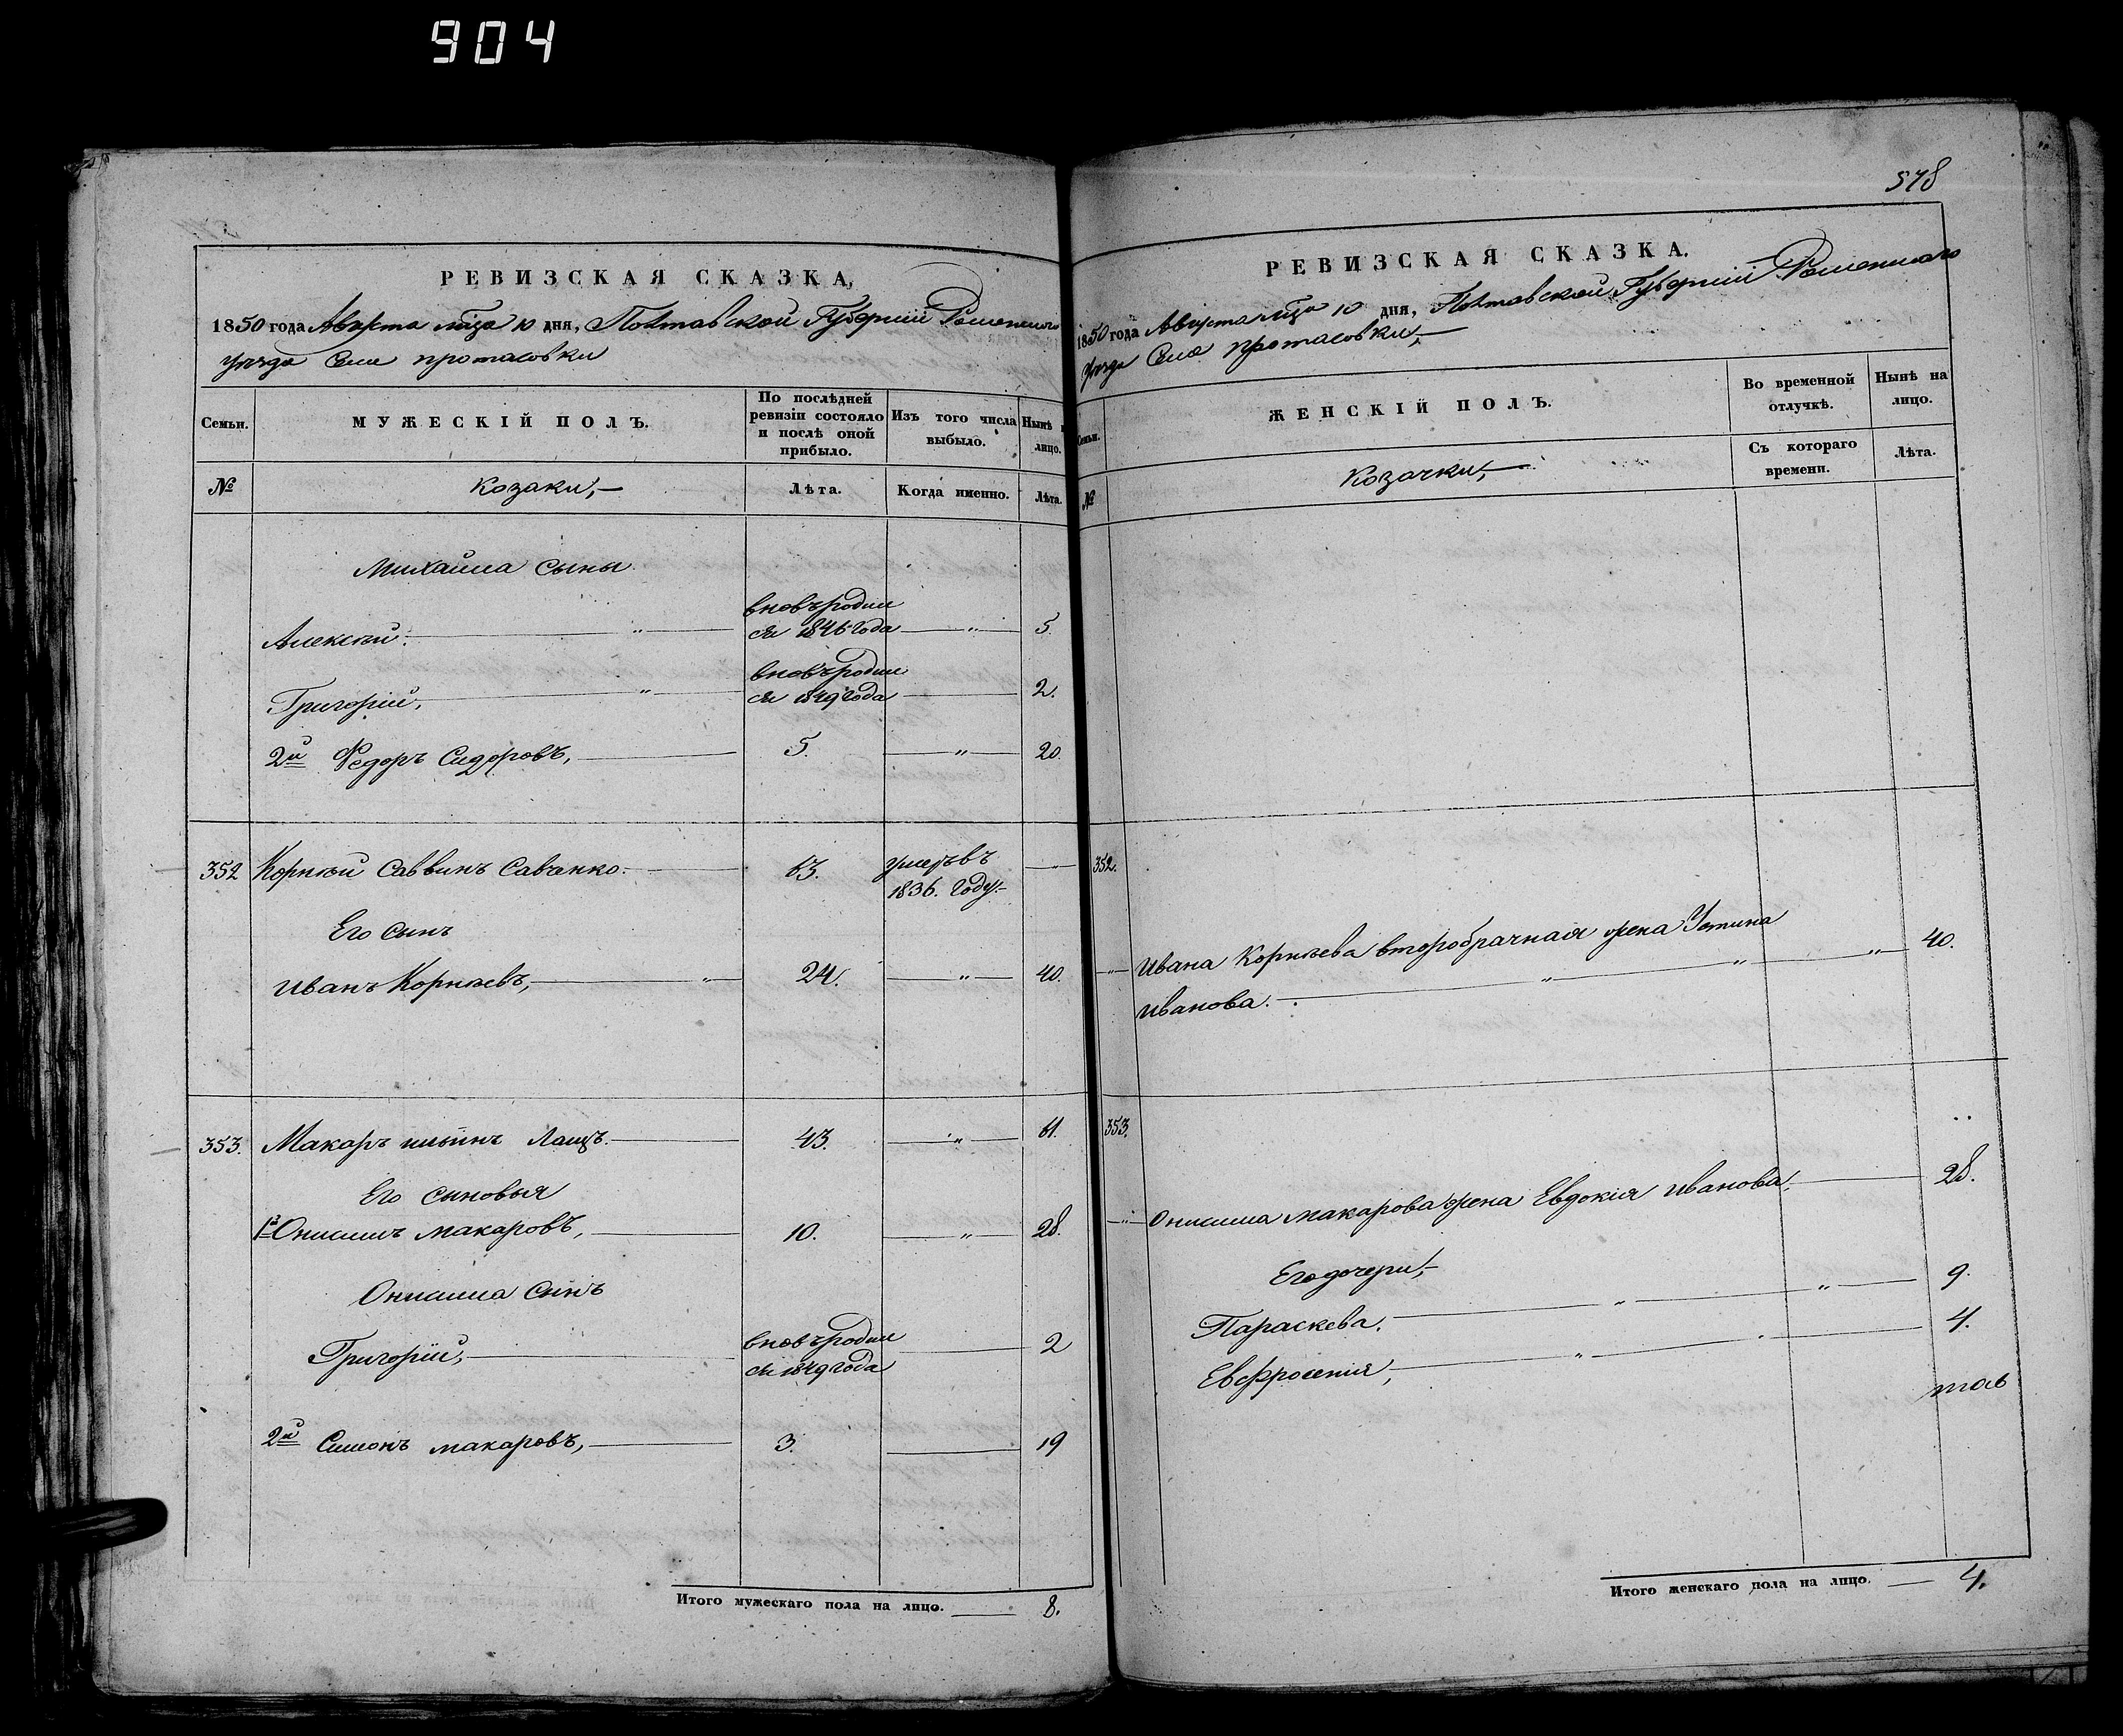 904
РЕВИЗСКАЯ СКАЗКА,
1850 года Августа мца 10 дня, Полтавской Губернии Роменского
уезда Села протасовки
Семьи.
МУЖЕСКІЙ ПОЛЪ.
По послѣдней ревизіи состояло и послѣ оной прибыло.
Изъ того числа выбыло.
Нынѣ
лицо.
№
Козаки,
Лѣта.
Когда именно.
Лѣта.
Михаила сыны
Алексѣй. " вновъродил
ся 1846 года " 5.
Григорій, " вновъродил
ся 1849 года 2.
2й Федоръ Сидоровъ, 5. " 20.
352 Корнѣй Саввинъ Савченко. 63. умеръ въ
1836. году.
Его сынъ
Иванъ Корнѣевъ, " 24. " 40.
353. Макаръ ильинъ Лащъ. 43. " 61.
Его сыновья
1й Онисимъ макаровъ, 10. " 28.
Онисима сынъ
Григорій, вновъродил
ся 1849 года 2
2й Симонъ макаровъ, 3. 19
Итого мужескаго пола на лицо. 8.
578
РЕВИЗСКАЯ СКАЗКА.
1850 года Августа мца 10 дня, Полтавской Губерніи Роменского
уезда Села протасовки,
Семьи.
ЖЕНСКІЙ ПОЛЪ.
Во временной отлучкѣ.
Нынѣ на лицо.
№
Козачки,
Съ котораго времени.
Лѣта.
352.
" Ивана Корнѣева второбрачная жена Устина
Иванова. " " " 40.
353.
" Онисима макарова жена Евдокія иванова, 28.
Его дочери,
Параскева. " " 9.
Евфросенія, " 4.
Итого женскаго пола на лицо. 4.